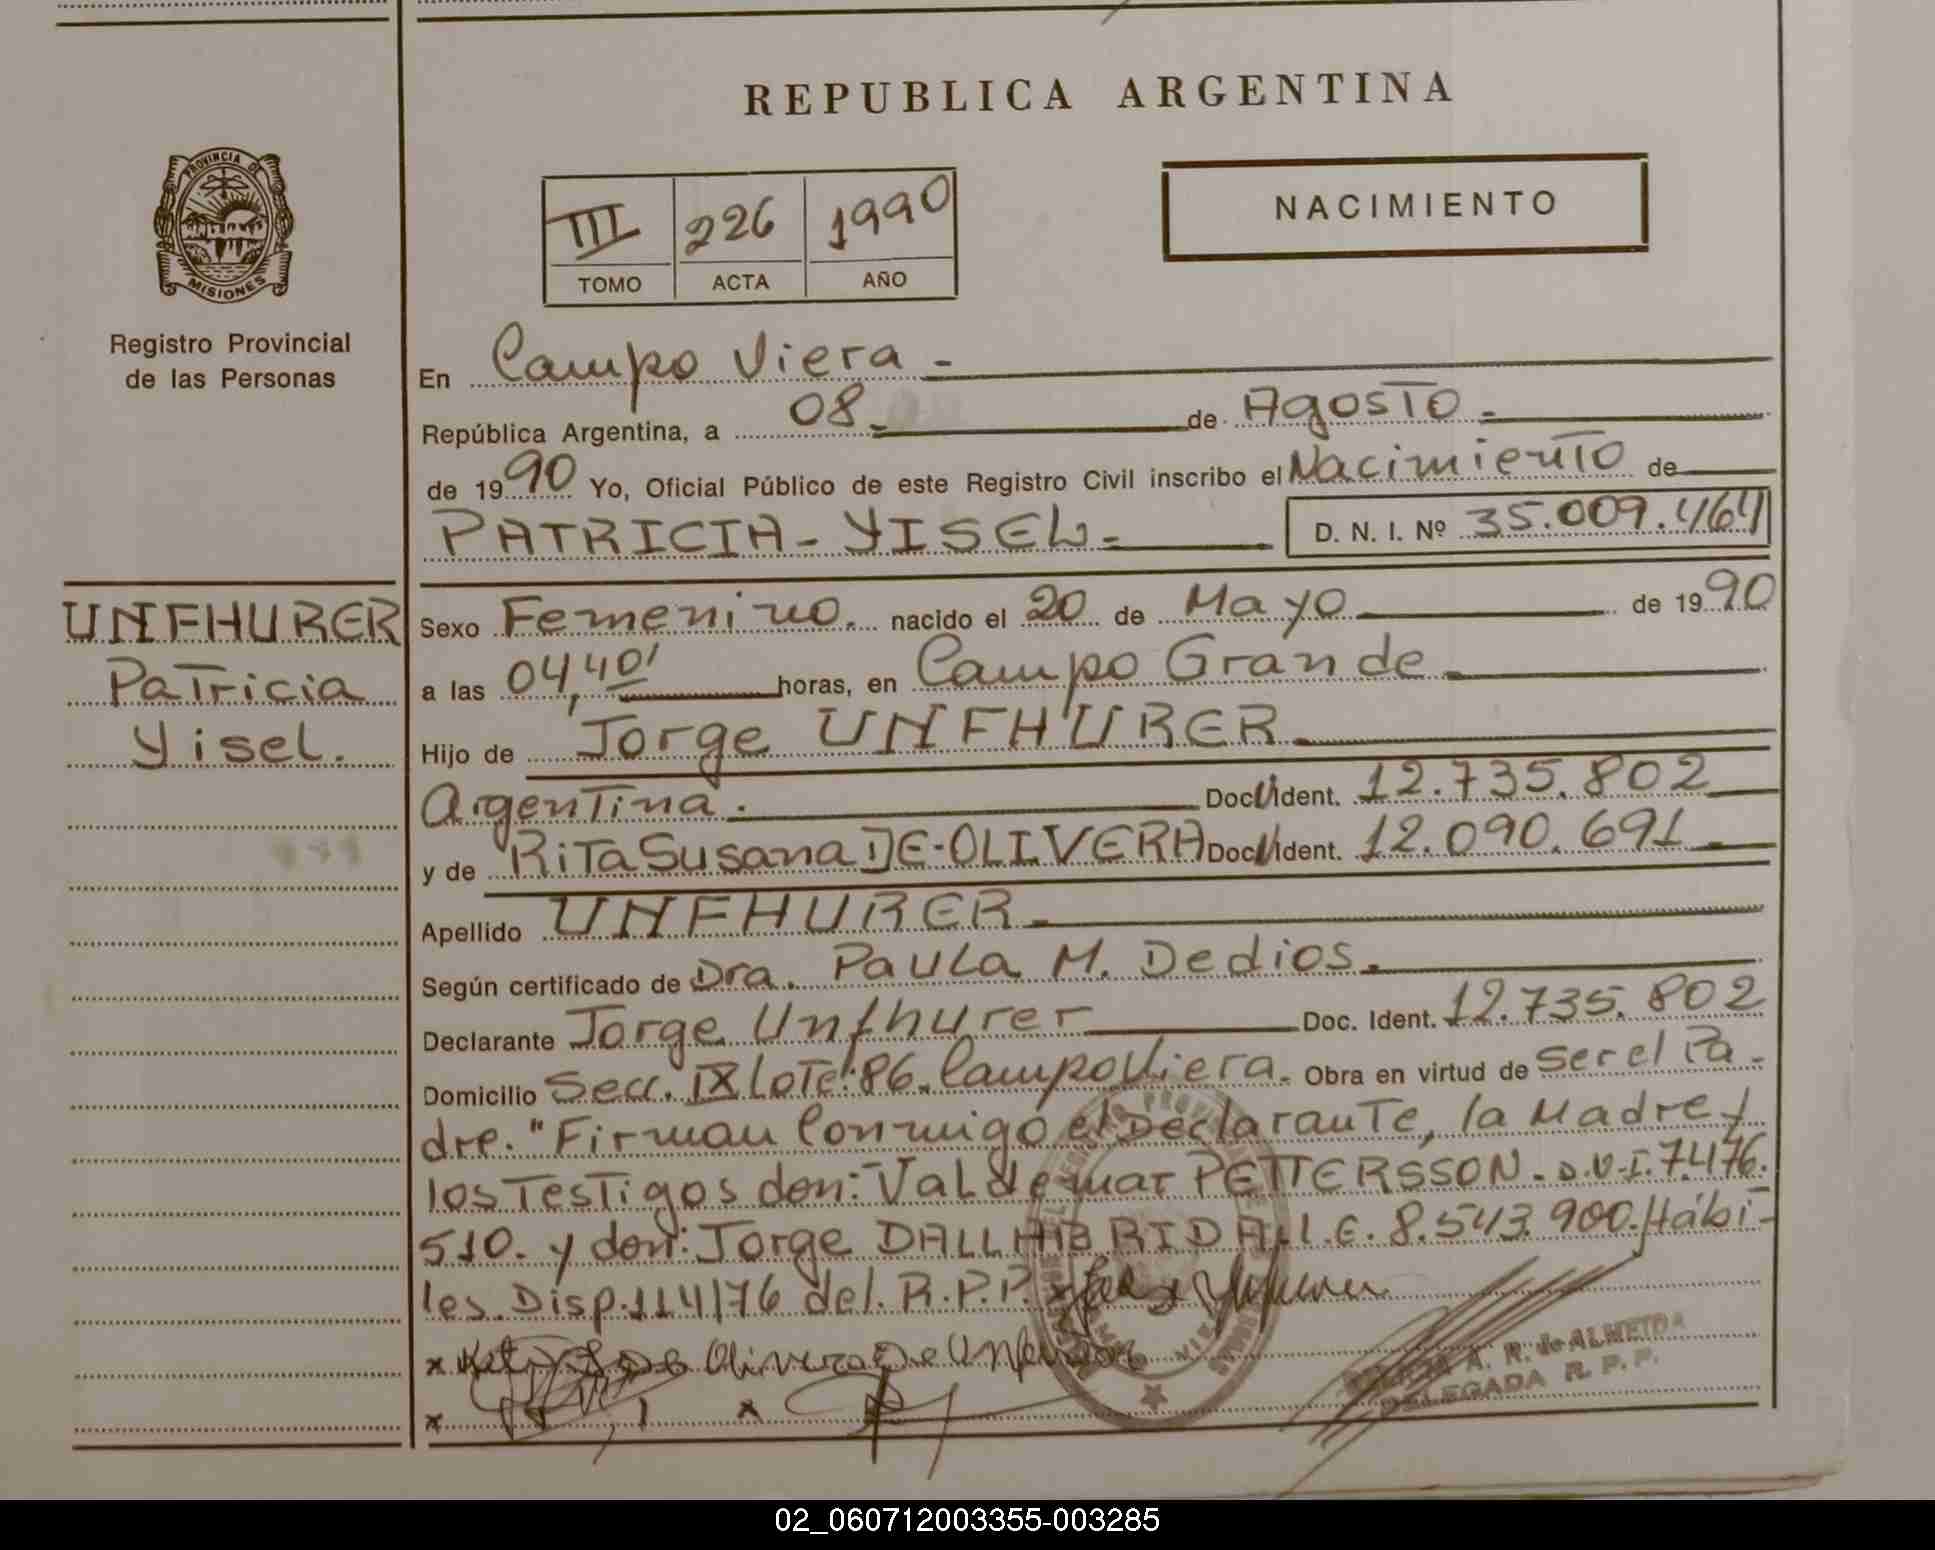 REPUBLICA ARGENTINA
PROVINCIA DE
MISIONES
Registro Provincial
de las Personas
III 226 1990
TOMO ACTA AÑO
NACIMIENTO
En Campo Viera -
República Argentina, a 08 - de Agosto -
de 1990 Yo, Oficial Público de este Registro Civil inscribo el Nacimiento de
PATRICIA - YISEL - D. N. I. Nº 35.009.464
UNFHURER
Patricia
Yisel.
Sexo Femenino. nacido el 20 de Mayo de 1990
a las 04,40' horas, en Campo Grande -
Hijo de Jorge UNFHURER -
Argentina. Doc. Ident. 12.735.802
y de Rita Susana DE-OLIVERA Doc. Ident. 12.090.691 -
Apellido UNFHURER -
Según certificado de Dra. Paula M. Dedios.
Declarante Jorge Unfhurer Doc. Ident. 12.735.802
Domicilio Secc. IX Lote: 86. Campo Viera. Obra en virtud de ser el Pa-
dre. "Firman Conmigo el Declarante, la Madre y
los Testigos don: Valdemar PETTERSSON - D.N.I. 7.476.
510. y don: Jorge DALLABRIDA L.E. 8.543.900. Hábi-
les. Disp. 114/76 del. R.P.P.
x
x x
A. R. de ALMEIDA
DELEGADA R. P. P.
02_060712003355-003285